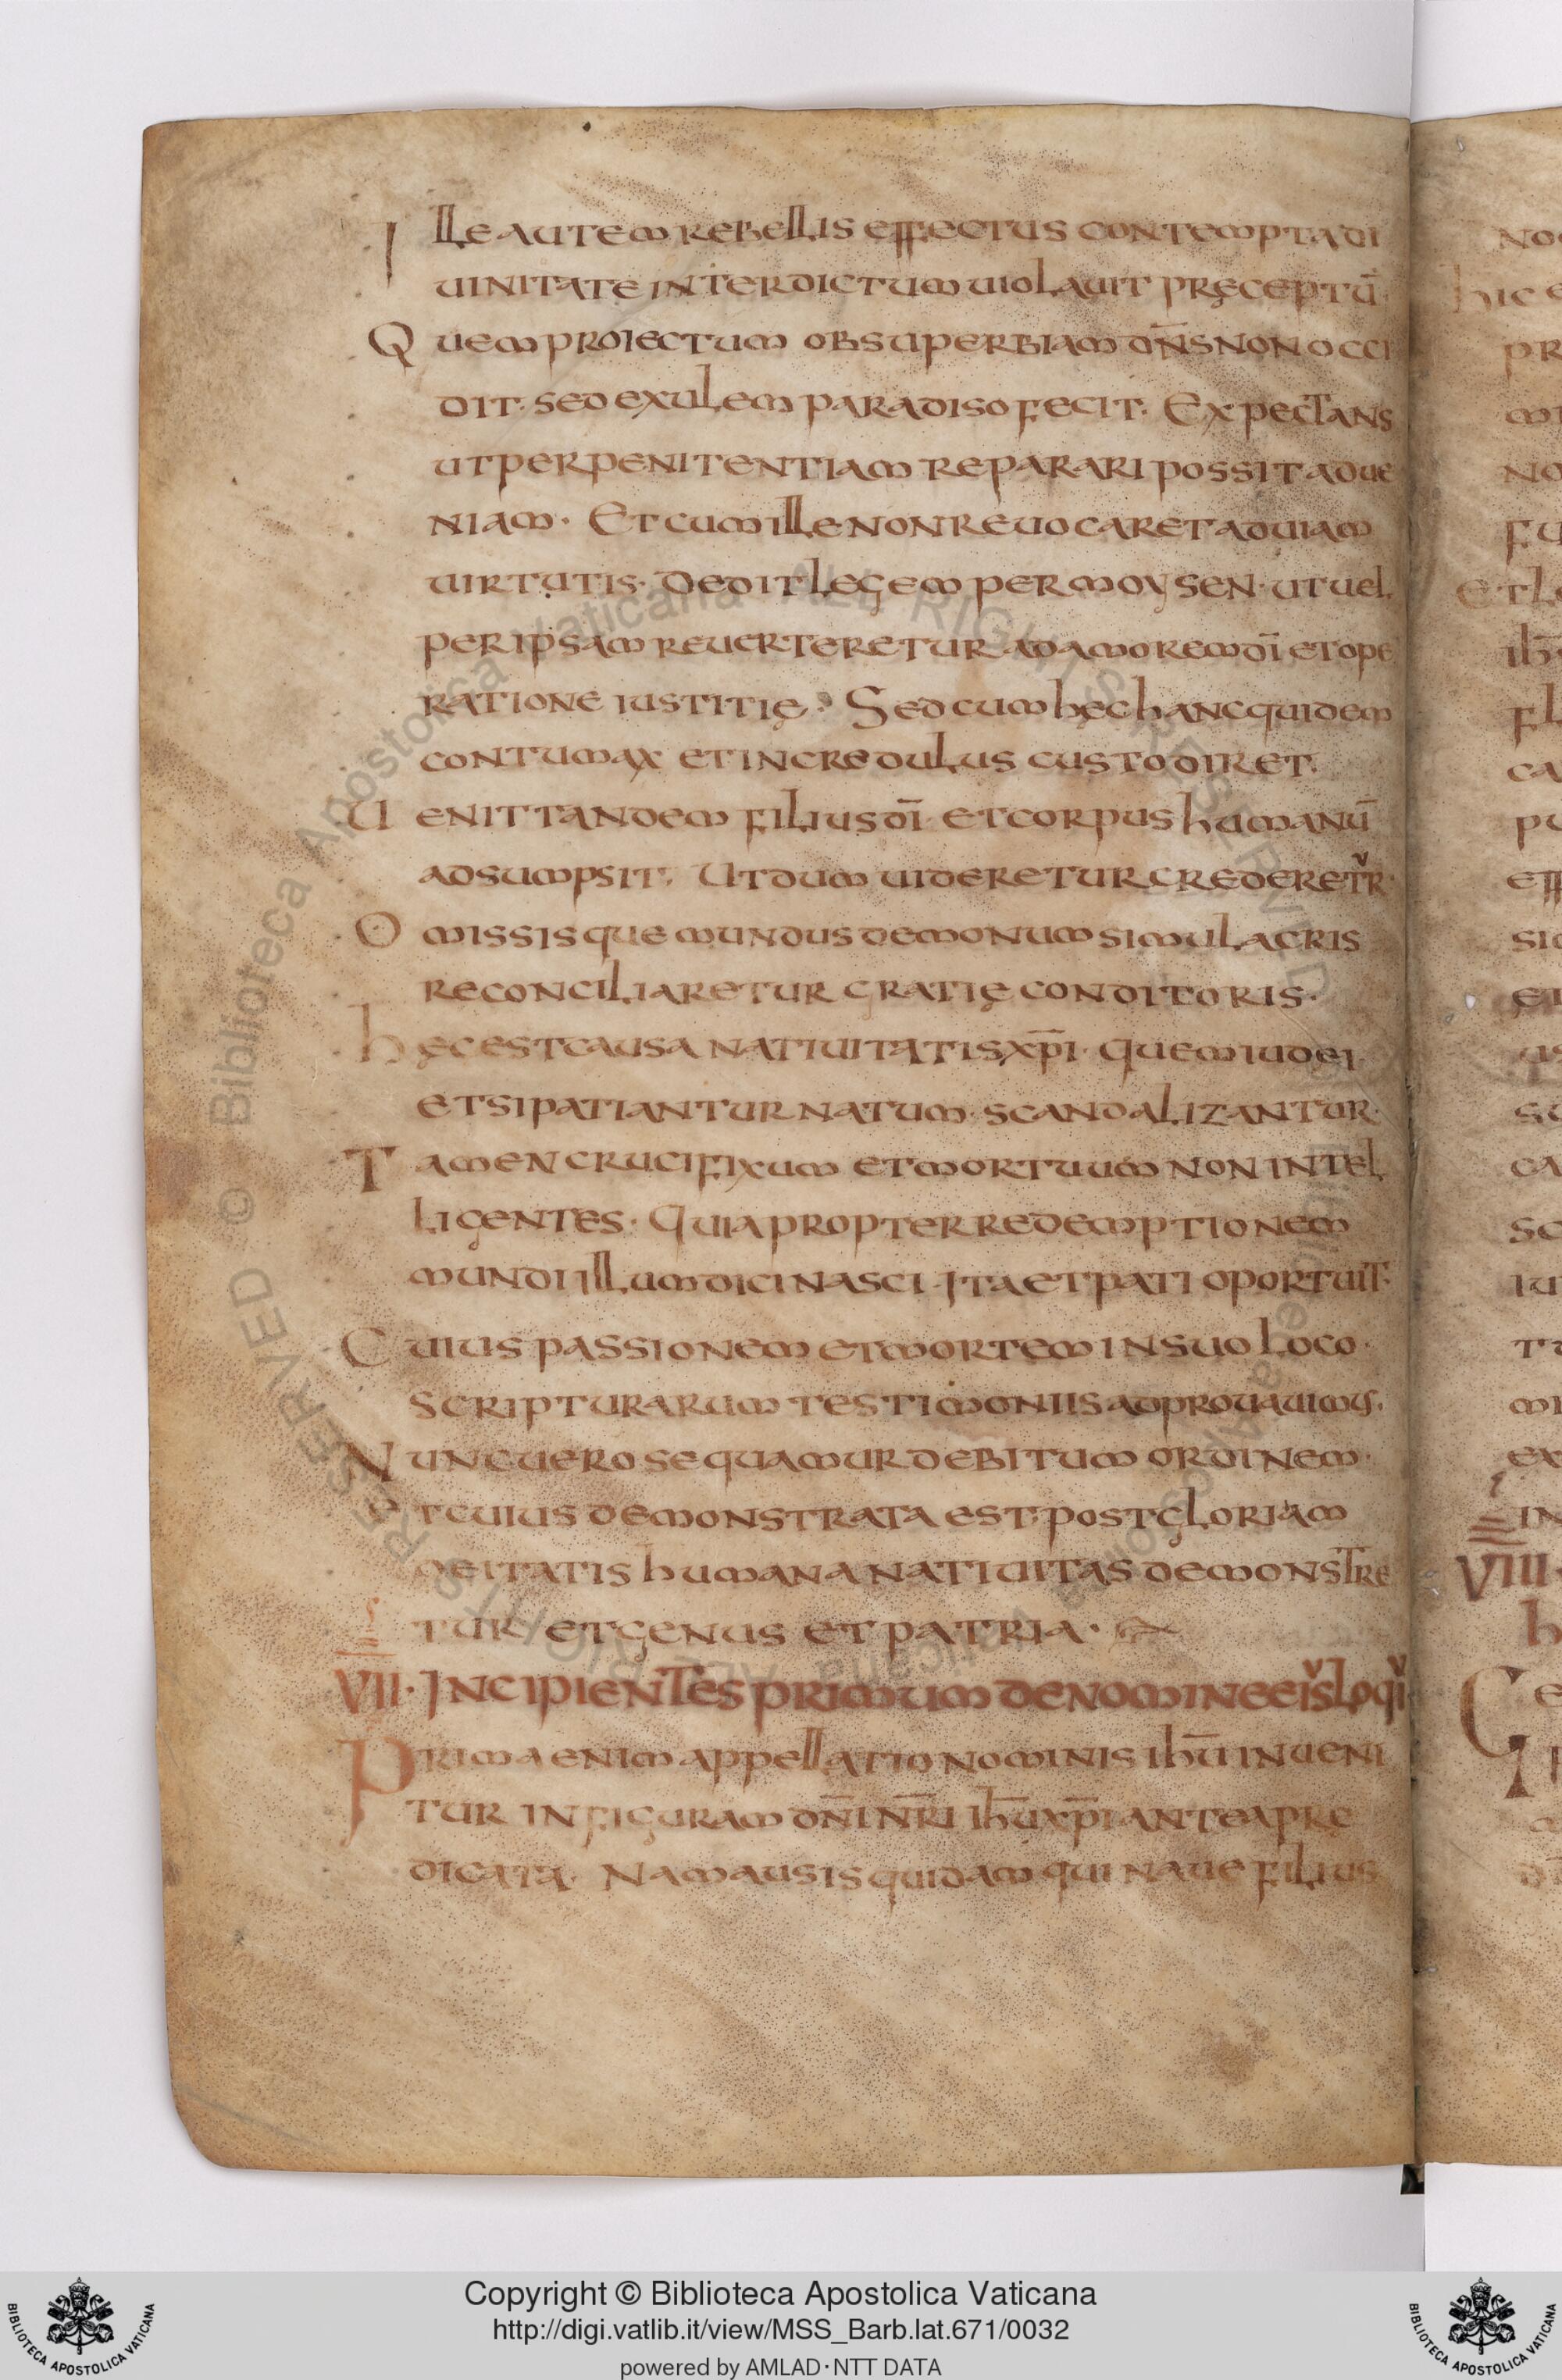 Ille autem rebellis effectus contempta di
uinitate interdictum uiolauit pręceptū·
Quem proiectum ob superbiam dn̄s non occi
dit· sed exulem paradiso fecit· Expectans
ut per penitentiam reparari possit ad ue
niam· Et cum ille non reuocaret ad uiam
uirtutis· Dedit legem per moysen· ut uel
per ipsam reuerteretur ad amorem dī et ope
ratione iustitię· Sed cum hęc hanc quidem
contumax et incredulus custodiret·
Uenit tandem filius dī· et corpus humanū
adsumpsit· Ut dum uideretur crederetur·
Omissisque mundus demonum simulacris
reconciliaretur gratię conditoris·
hęc est causa natiuitatis xp̄i· quem iudei
etsi patiantur natum· scandalizantur·
Tamen crucifixum et mortuum non intel
ligentes· Quia propter redemptionem
mundi illum dici nasci· Ita et pati oportuit·
Cuius passionem et mortem in suo loco·
scripturarum testimoniis adprouauimus·
Nunc uero sequamur debitum ordinem·
et cuius demonstrata est· post gloriam
deitatis humana natiuitas demonstre
tur et genus et patria·
VII· Incipientes primum de nomine eius loqui
Prima enim appellatio nominis ihū inueni
tur in figuram dn̄i nr̄i ihū xp̄i antea prę
dicata· Nam ausis quidam qui naue filius
Copyright © Biblioteca Apostolica Vaticana
http://digi.vatlib.it/view/MSS_Barb.lat.671/0032
powered by AMLAD·NTT DATA